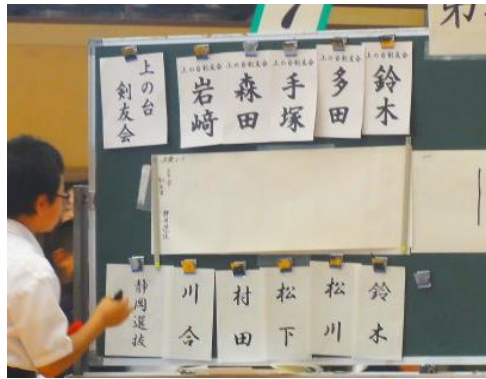 第
上の台
剣友会
上の台剣友会
岩﨑
上の台剣友会
森田
上の台剣友会
手塚
上の台剣友会
多田
上の台剣友会
鈴木
静岡選抜
川合
村田
松下
松川
鈴木